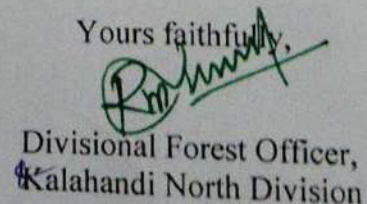 Yours faithfully,
Divisional Forest Officer,
Kalahandi North Division